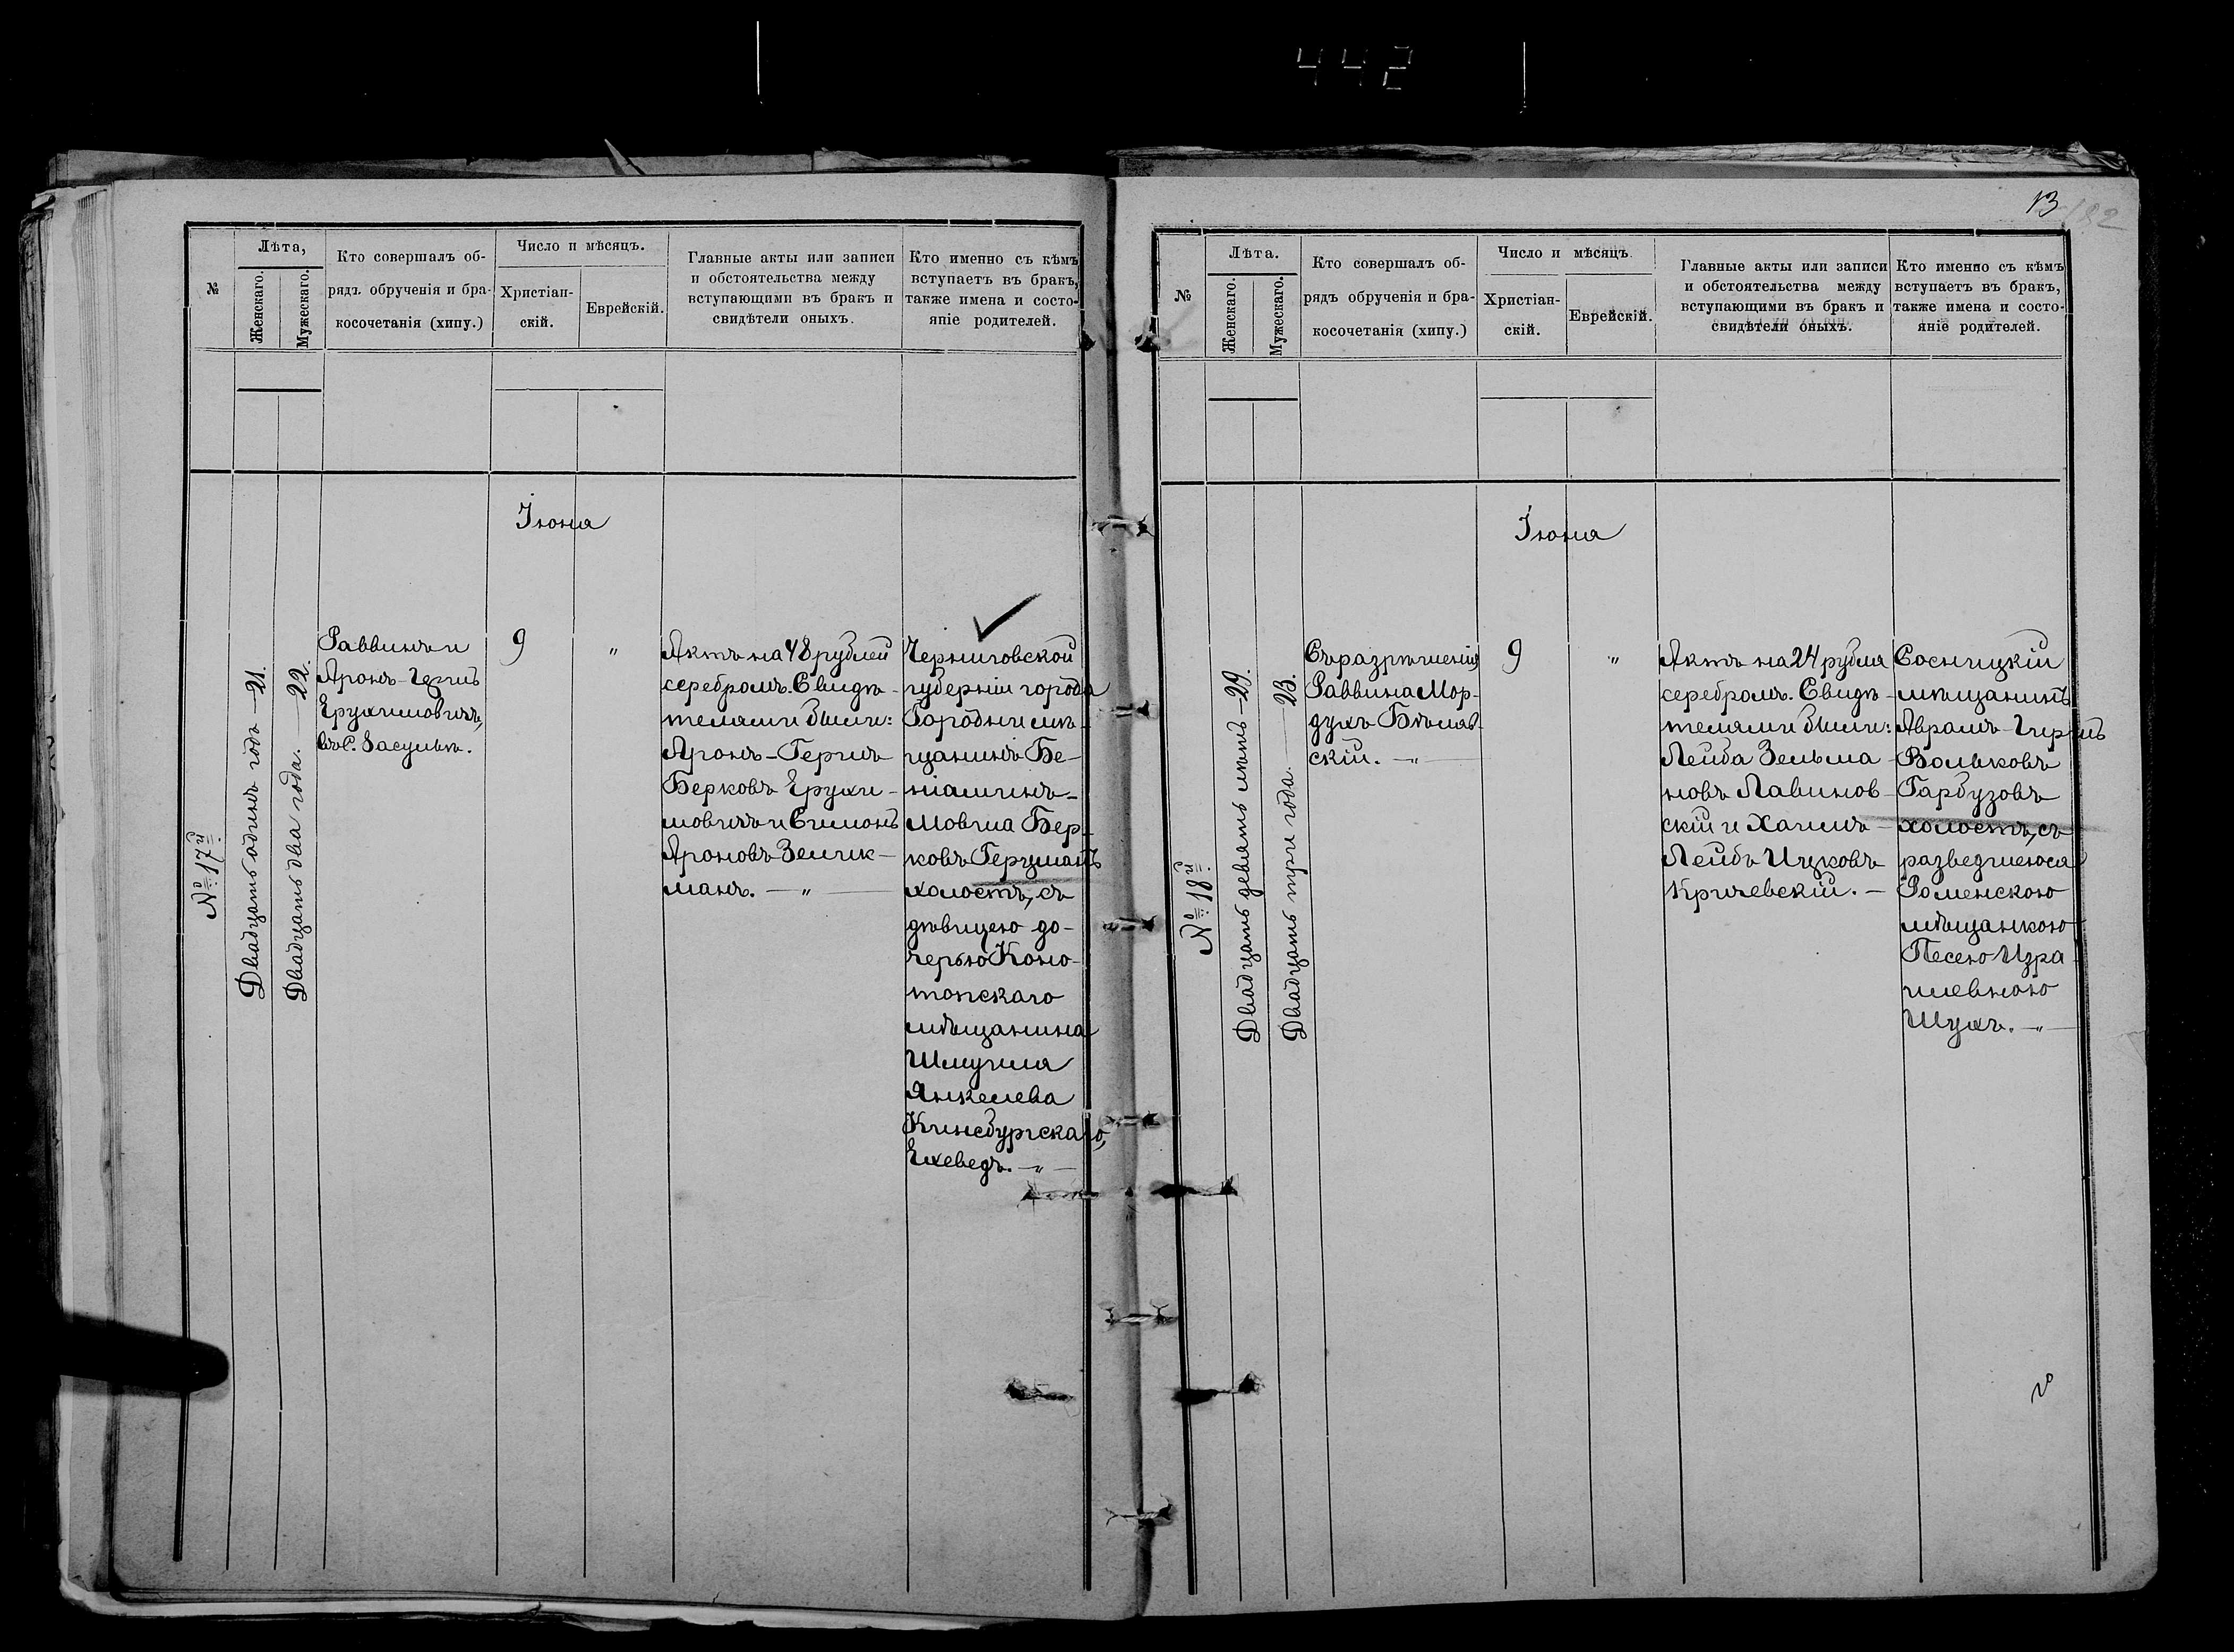 442
№
Лѣта,
Женскаго.
Мужескаго.
Кто совершалъ об-
рядъ обрученія и бра-
косочетанія (хипу.)
Число и мѣсяцъ.
Христіан-
скій.
Еврейскій.
Главные акты или записи
и обстоятельства между
вступающими въ бракъ и
свидѣтели оныхъ.
Кто именно съ кѣмъ
вступаетъ въ бракъ,
также имена и состо-
яніе родителей.
Іюня
№ 17й
Двадцать одинъ годъ — 21.
Двадцать два года. — 22.
Раввинъ и
Аронъ-Герцъ
Ерухимовичъ,
въ с. Засульѣ.
9
"
Актъ на 48 рублей
серебромъ. Свидѣ-
телями были:
Аронъ-Герцъ
Берковъ Ерухи-
мовичъ и Симонъ
Ароновъ Зелик-
манъ. — " —
Черниговской
губерніи города
Городни мѣ-
щанинъ Бе-
ніаминъ-
Мовша Бер-
ковъ Герцманъ
холостъ, съ
дѣвицею до-
черью Коно-
топскаго
мѣщанина
Шмуила
Янкелева
Кинсбургскаго,
Ехеведъ. — " —
13
182
№
Лѣта.
Женскаго.
Мужескаго.
Кто совершалъ об-
рядъ обрученія и бра-
косочетанія (хипу.)
Число и мѣсяцъ.
Христіан-
скій.
Еврейскій.
Главные акты или записи
и обстоятельства между
вступающими въ бракъ и
свидѣтели оныхъ.
Кто именно съ кѣмъ
вступаетъ въ бракъ,
также имена и состо-
яніе родителей.
Іюня
№ 18й
Двадцать девять лѣтъ — 29.
Двадцать три года. — 23.
Съ разрѣшенія
Раввина Мор-
духъ Бѣляв-
скій. — " —
9
"
Актъ на 24 рубля
серебромъ. Свидѣ-
телями были:
Лейба Зельма-
новъ Лавинов-
скій и Хаимъ-
Лейбъ Ицковъ
Кричевскій. —
Сосницкій
мѣщанинъ
Аврамъ-Гиршъ
Вольковъ
Гарбузовъ
холостъ, съ
разведшеюся
Роменскою
мѣщанкою
Песею Изра-
илевною
Шухъ. — " —